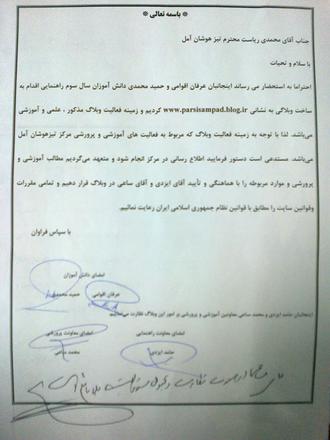 * باسمه تعالی *
جناب آقای محمدی ریاست محترم تیز هوشان آمل
با سلام و تحیات
احتراما به استحضار می رساند اینجانبان عرفان اقوامی و حمید محمدی دانش آموزان سال سوم راهنمایی اقدام به
ساخت وبلاگی به نشانی www.parsisampad.blog.ir کردیم و زمینه فعالیت وبلاگ مذکور ، علمی و آموزشی
می باشد. لذا با توجه به زمینه فعالیت وبلاگ که مربوط به فعالیت های آموزشی و پرورشی مرکز تیزهوشان آمل
می باشد. مستدعی است دستور فرمایید اطلاع رسانی در مرکز انجام شود و متعهد می‌گردیم مطالب آموزشی و
پرورشی و موارد مربوطه را با هماهنگی و تأیید آقای ایزدی و آقای ساعی در وبلاگ قرار دهیم و تمامی مقررات
وقوانین سایت را مطابق با قوانین نظام جمهوری اسلامی ایران رعایت نمائیم.
با سپاس فراوان
امضای دانش آموزان
عرفان اقوامی حمید محمدی
اینجانبان حامد ایزدی و محمد ساعی معاونین آموزشی و پرورشی بر امور این وبلاگ نظارت می‌نماییم.
امضای معاونت راهنمایی امضای معاونت پرورشی
حامد ایزدی محمد ساعی
در صورت نظارت و قبول مسئولیت